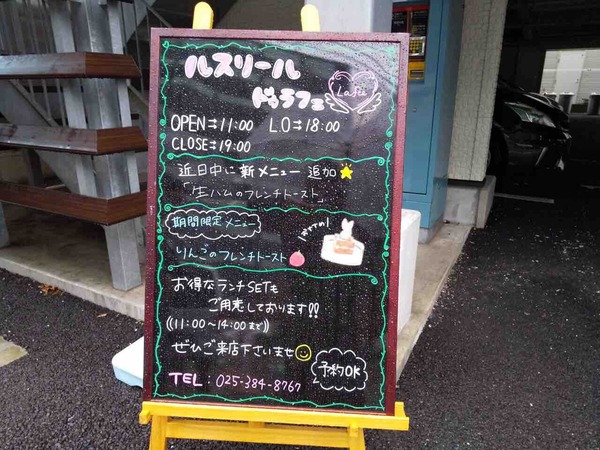 ルスリール
ドゥラフェ
Lafée
OPEN⇒11:00 L.O⇒18:00
CLOSE⇒19:00
近日中に 新メニュー 追加
「生ハムのフレンチトースト」
期間限定メニュー
りんごのフレンチトースト
お得なランチSETも
ご用意しております!!
((11:00〜14:00まで))
ぜひご来店下さいませ
予約OK
TEL:025-384-8767